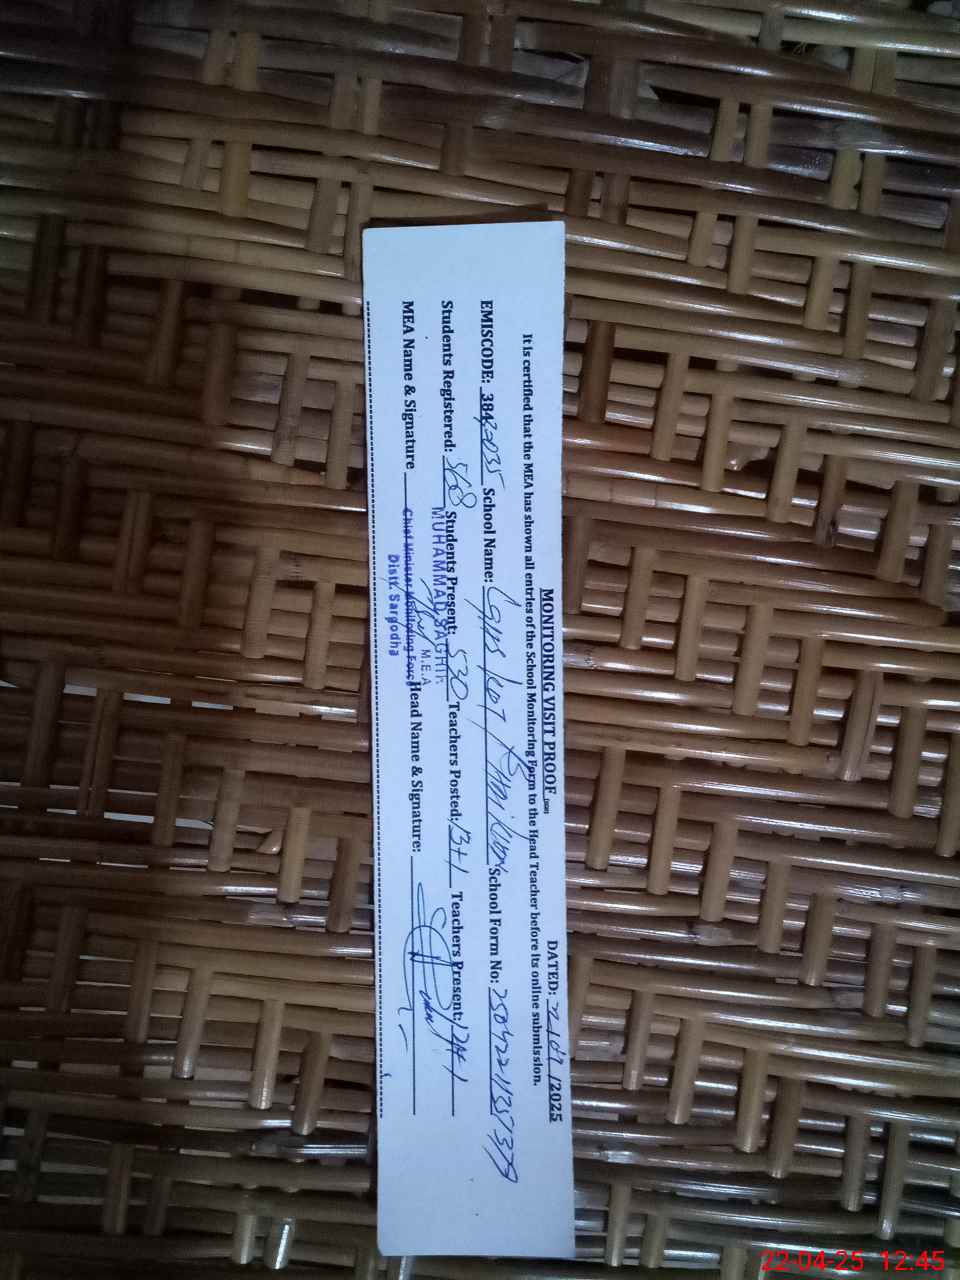 MONITORING VISIT PROOF DATED: 22/04/2025
It is certified that the MEA has shown all entries of the School Monitoring Form to the Head Teacher before its online submission.
EMISCODE: 38432035 School Name: GGPS Kot School Form No:
Students Registered: 568 Students Present: 530 Teachers Posted: 13+1 Teachers Present:
MUHAMMAD SAGHIR
M.E.A
MEA Name & Signature Chief Minister Monitoring Force Head Name & Signature:
Distt. Sargodha
22-04-25 12:45